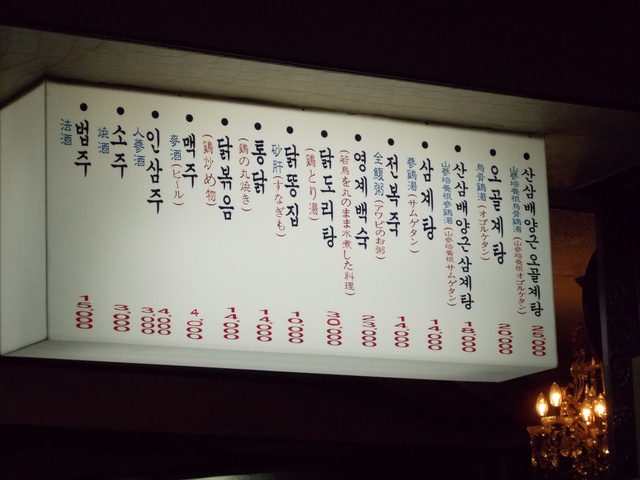 산삼배양근오골계탕
山蔘培養根烏骨鷄湯
(山蔘培養根オゴルケタン)
25,000
오골계탕
烏骨鷄湯
(オゴルケタン)
20,000
산삼배양근삼계탕
山蔘培養根蔘鷄湯
(山蔘培養根サムゲタン)
18,000
삼계탕
蔘鷄湯
(サムゲタン)
14,000
전복죽
全鰒粥
(アワビのお粥)
14,000
영계백숙
(若鳥を丸のまま水煮した料理)
23,000
닭도리탕
(鶏とり湯)
30,000
닭똥집
砂肝
(すなぎも)
10,000
통닭
(鶏の丸焼き)
14,000
닭볶음
(鶏炒め物)
14,000
맥주
麥酒
(ビール)
4,000
인삼주
人蔘酒
4,000
3,000
소주
燒酒
3,000
법주
法酒
15,000